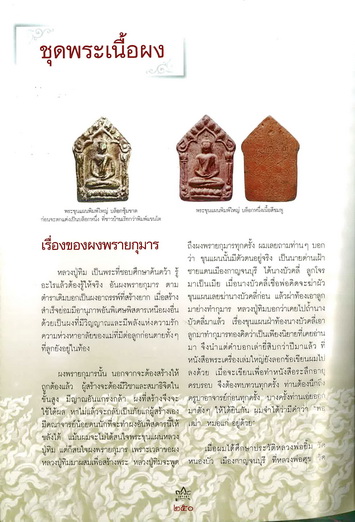 ชุดพระเนื้อผง
พระขุนแผนพิมพ์ใหญ่ บล็อกชุ้มขาด
พระขุนแผนพิมพ์ใหญ่ บล็อกหนึ่งเนื้อสีชมพู
เรื่องของผงพรายกุมาร
หลวงปู่ทิม เป็นพระที่ชอบศึกษาค้นคว้า รู้
อะไรแล้วต้องรู้ให้จริง อันผงพรายกุมาร ตาม
ตำราเดิมบอกเป็นผงอาถรรพ์ที่สร้างยาก เมื่อสร้าง
สำเร็จย่อมมีอานุภาพอันพิเศษพิสดารเหนือผงอื่น
ด้วยเป็นผงที่มีวิญญาณและมีพลังแห่งความรัก
ความห่วงหาอาลัยของแม่ที่มีต่อลูกก่อนตายทั้งๆ
ที่ลูกยังอยู่ในท้อง
ผงพรายกุมารนั้น นอกจากจะต้องสร้างให้
ถูกต้องแล้ว ผู้สร้างจะต้องมีวิชาและสมาธิจิตใน
ขั้นสูง มีญาณอันแกร่งกล้า ผงที่สร้างจึงจะ
ใช้ได้ผล หาไม่แล้วจะกลับเป็นภัยแก่ผู้สร้างเอง
มีคณาจารย์น้อยคนนักที่จะทำผงอันพิสดารนี้ให้
ขลังได้ แม้นผมจะไม่ได้สนใจพระขุนแผนหลวง
ปู่ทิม แต่ก็สนใจผงพรายกุมาร เพราะเวลาของผง
หลวงปู่ทิมมาผสมเพื่อสร้างพระ หลวงปู่ทิมจะพูด
ถึงผงพรายกุมารทุกครั้ง ผมเลยถามท่านๆ บอก
ว่า ขุนแผนนั้นมีตัวตนอยู่จริง เป็นนายด่านเฝ้า
ชายแดนเมืองกาญจนบุรี ได้นางบัวคลี่ ลูกโจร
มาเป็นเมีย เมื่อนางบัวคลี่เชื่อพ่อคิดจะฆ่าผัว
ขุนแผนเลยฆ่านางบัวคลี่ก่อน แล้วผ่าท้องเอาลูก
มาย่างเป็นกุมารทอง หลวงปู่ทิมบอกว่าเคยไปถ้ำนาง
บัวคลี่มาแล้ว เรื่องขุนแผนผ่าท้องนางบัวคลี่เอา
ลูกมาทำกุมารทองคิดว่าเป็นเพียงนิยายที่เคยอ่าน
หนังสือพระเครื่องเล่มใหญ่ยังลอกข้อเขียนผมไป
ลงด้วย เมื่อจะเขียนเพื่อทำหนังสือระลึกอายุ
ครบรอบ จึงต้องทบทวนทุกครั้ง
หนองบัว เมืองกาญจนบุรี
๒๕๐